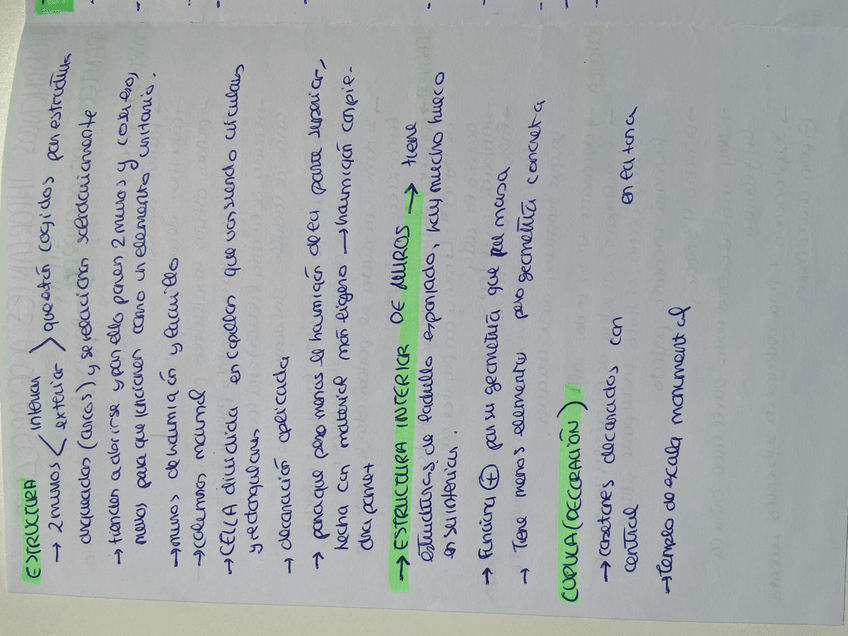 ESTRUCTURA
→ 2 muros < interior exterior > que están cogidos por estructura
arqueados (arcos) y se relacionan
→ tienden a abrirse y por ello ponen 2 muros y
menos para que funcionen como un elemento unitario.
→ muros de hormigón y ladrillo
→ columnas marmol
→ CELLA dividida en capillas que van siendo circulares
y rectangulares
→ decoración aplicada
→ para que pese menos el hormigón de la parte superior,
hecha con material más ligero → hormigón con pie-
dra pomez
→ ESTRUCTURA INTERIOR DE MUROS → tiene
estructuras de ladrillo esponjado, hay mucho hueco
en su interior.
→ Funciona + por su geometría que por masa
→ Tiene menos elementos pero geometría concreta
CÚPULA (DECORACIÓN)
→ casetones decorados con
central
→ templo de escala monumental